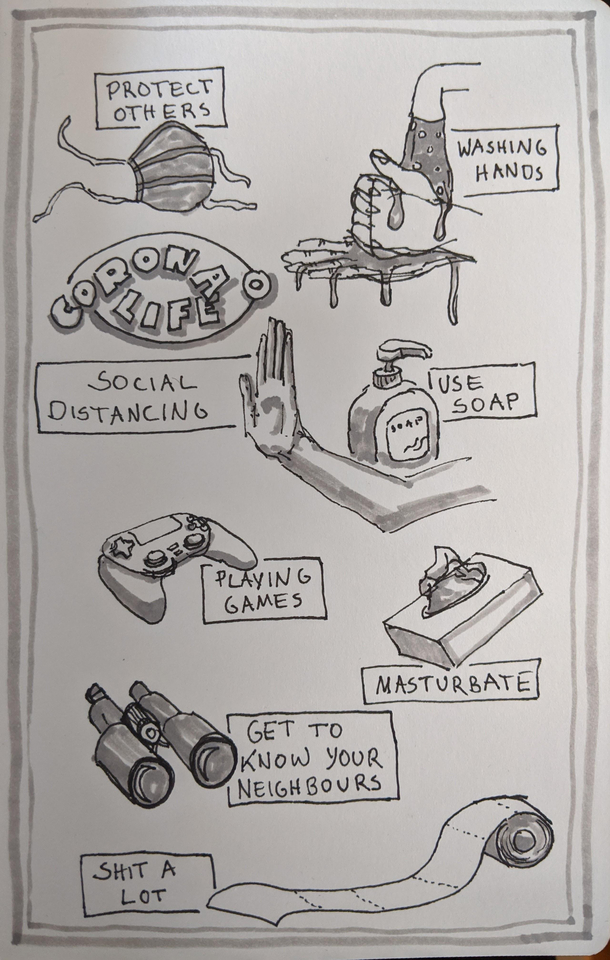 PROTECT
OTHERS
WASHING
HANDS
CORONA
LIFE
SOCIAL
DISTANCING
USE
SOAP
SOAP
PLAYING
GAMES
MASTURBATE
GET TO
KNOW YOUR
NEIGHBOURS
SHIT A
LOT